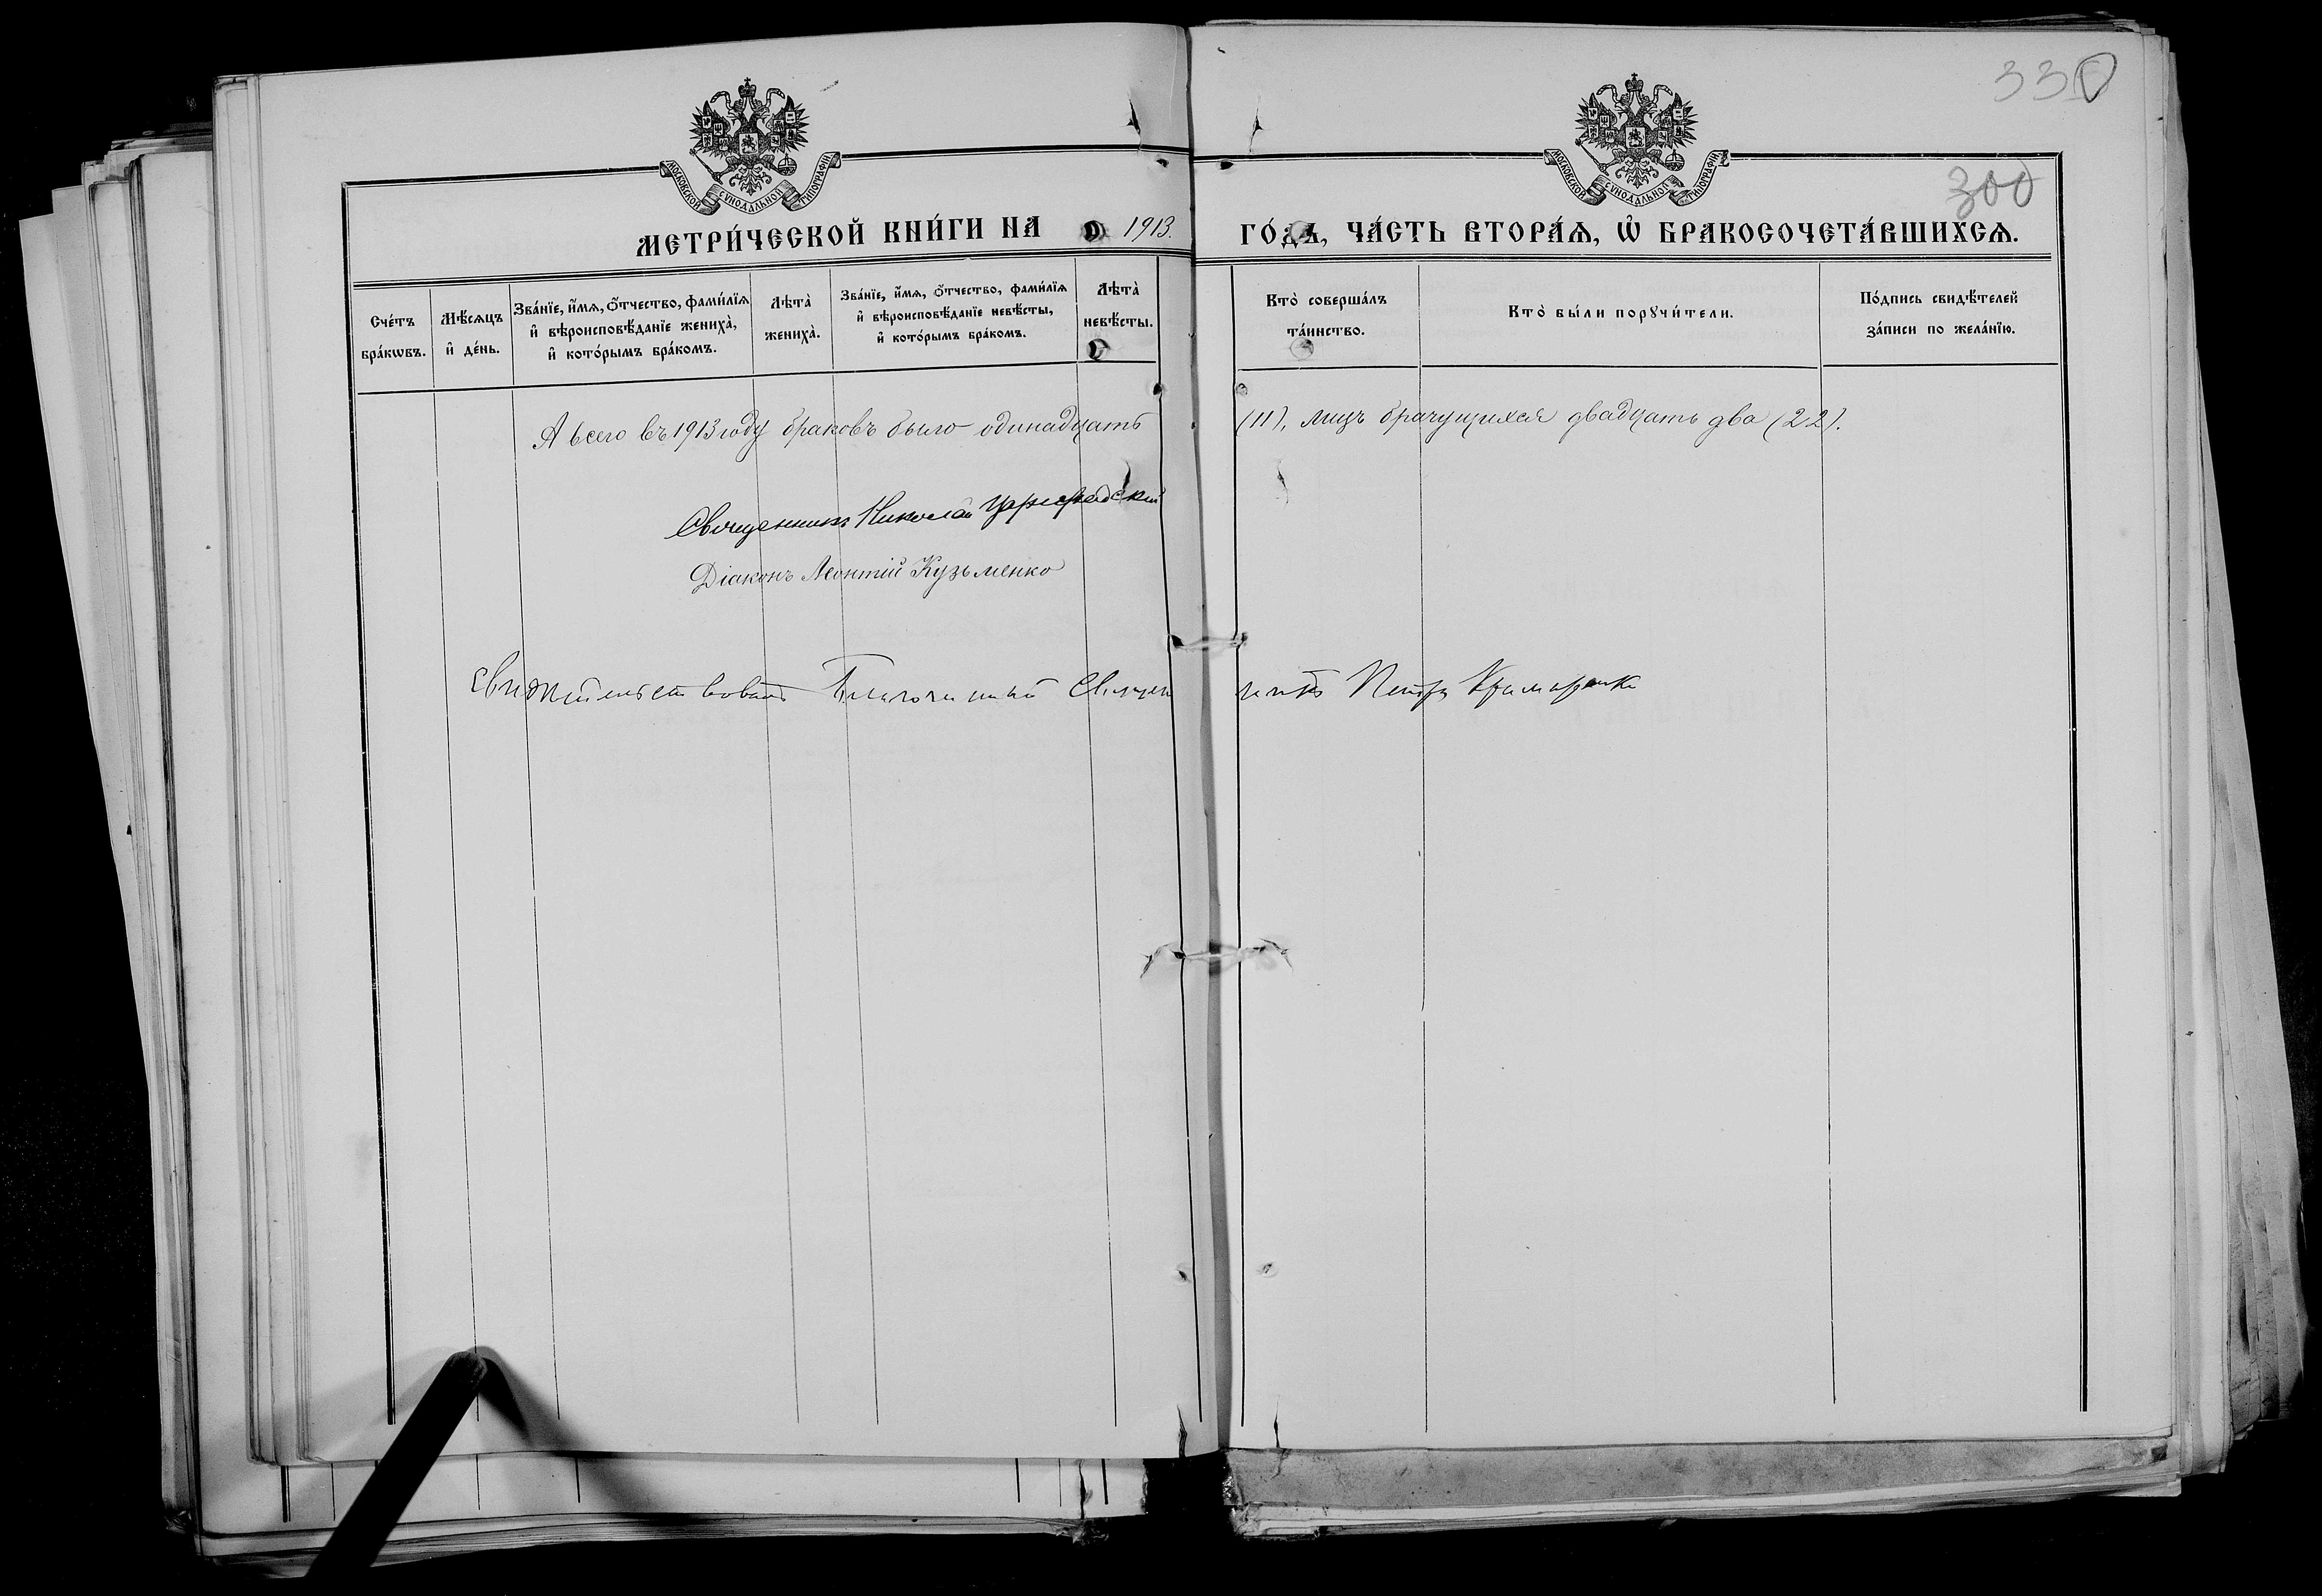 330
300
МОСКОВСКОЙ СѴНОДАЛЬНОЙ ТИПОГРАФІИ
МОСКОВСКОЙ СѴНОДАЛЬНОЙ ТИПОГРАФІИ
МЕТРИ́ЧЕСКОЙ КНИ́ГИ НА 1913. ГО́ДЪ, ЧА́СТЬ ВТОРА́Ѧ, Ѡ҆ БРАКОСОЧЕТА́ВШИХСѦ.
Сче́тъ бра́кѡвъ.
Мѣ́сѧцъ и҆ де́нь.
Зва́нїе, и҆́мѧ, ѻ҆́тчество, фами́лїѧ и҆ вѣроисповѣ́данїе жениха̀, и҆ кото́рымъ бра́комъ.
Лѣта̀ жениха̀.
Зва́нїе, и҆́мѧ, ѻ҆́тчество, фами́лїѧ и҆ вѣроисповѣ́данїе невѣ́сты, и҆ кото́рымъ бра́комъ.
Лѣта̀ невѣ́сты.
Кто̀ соверша́лъ та́инство.
Кто̀ бы́ли порꙋчи́тели.
По́дпись свидѣ́телей за́писи по жела́нїю.
А всего въ 1913 году браковъ было одинадцать (11), лицъ брачущихся двадцать два (22).
Священникъ Николай
Діаконъ Леонтій Кузьменко
Свидѣтельствовалъ Благочинный Священникъ Петръ Крамаренко